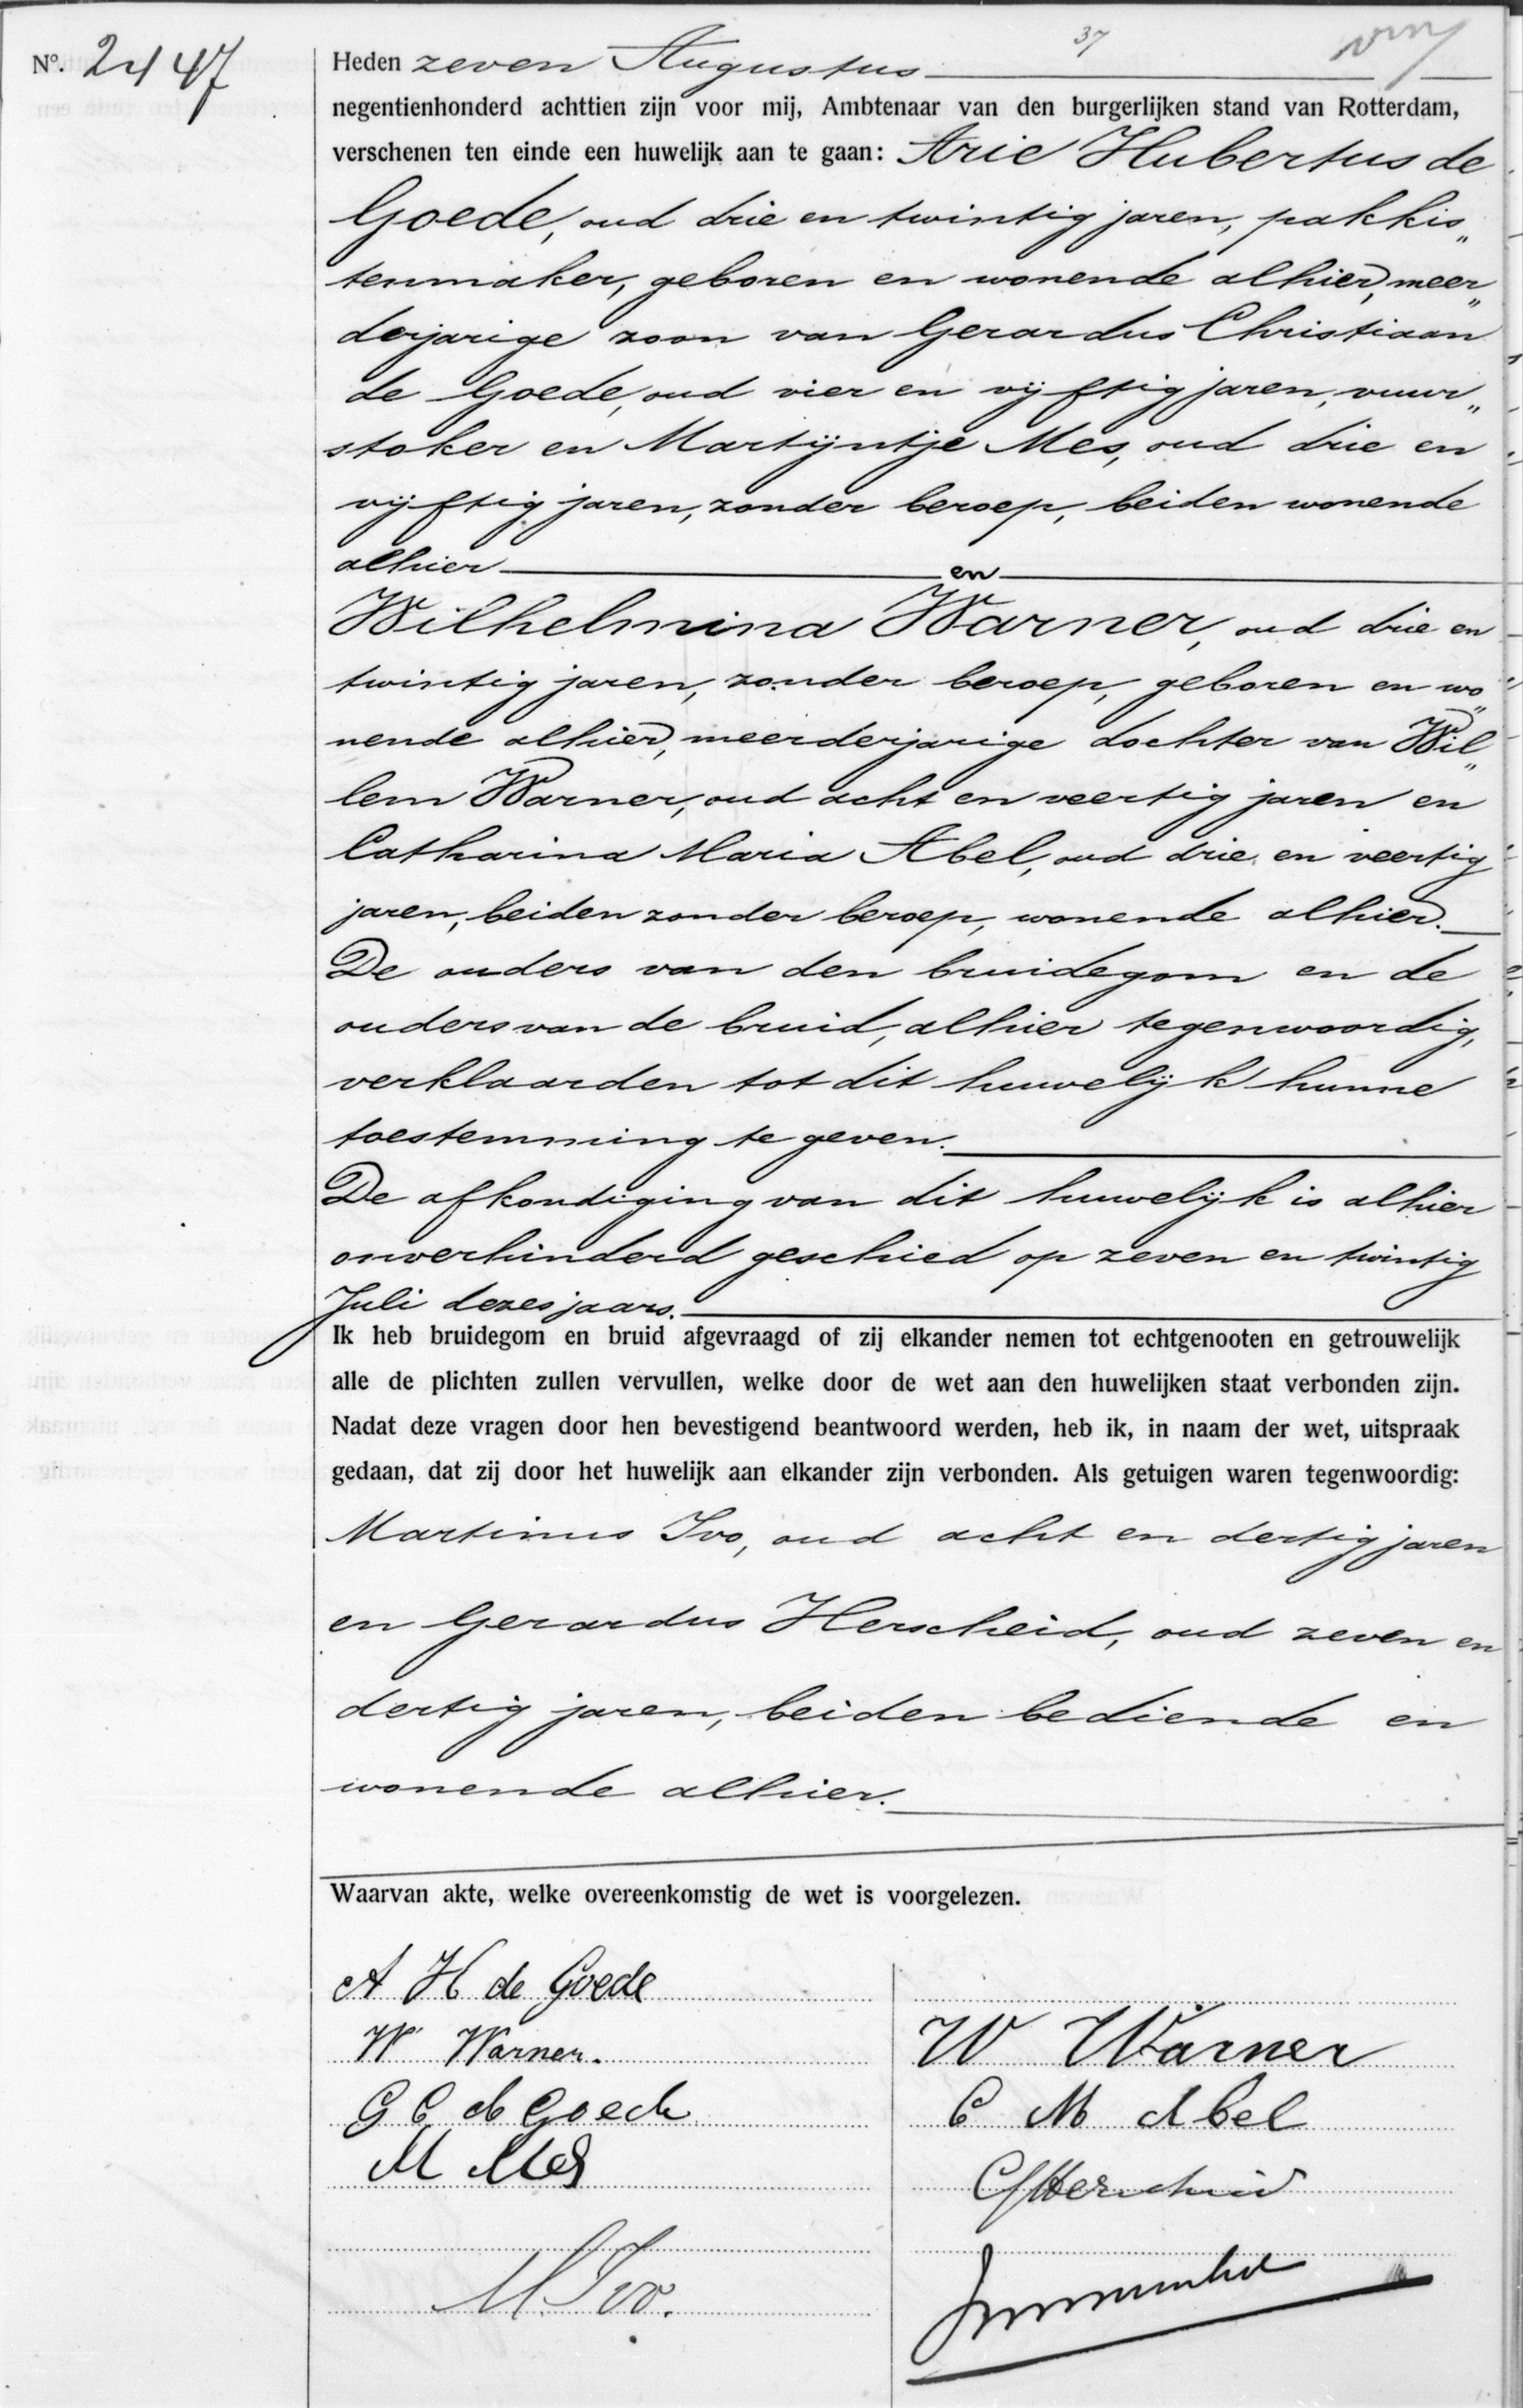 37
No. 2447
Heden zeven Augustus
negentienhonderd achttien zijn voor mij, Ambtenaar van den burgerlijken stand van Rotterdam,
verschenen ten einde een huwelijk aan te gaan: Arie Hubertus de
Goede, oud drie en twintig jaren, pakkis„
tenmaker, geboren en wonende alhier, meer„
derjarige zoon van Gerardus Christiaan
de Goede, oud vier en vijftig jaren, vuur„
stoker en Martijntje Mes, oud drie en
vijftig jaren, zonder beroep, beiden wonende
alhier en
Wilhelmina Warner, oud drie en
twintig jaren, zonder beroep, geboren en wo„
nende alhier, meerderjarige dochter van Wil„
lem Warner, oud acht en veertig jaren en
Catharina Maria Abel, oud drie en veertig
jaren, beiden zonder beroep, wonende alhier.
De ouders van den bruidegom en de
ouders van de bruid, alhier tegenwoordig,
verklaarden tot dit huwelijk hunne
toestemming te geven.
De afkondiging van dit huwelijk is alhier
onverhinderd geschied op zeven en twintig
Juli dezes jaars.
Ik heb bruidegom en bruid afgevraagd of zij elkander nemen tot echtgenooten en getrouwelijk
alle de plichten zullen vervullen, welke door de wet aan den huwelijken staat verbonden zijn.
Nadat deze vragen door hen bevestigend beantwoord werden, heb ik, in naam der wet, uitspraak
gedaan, dat zij door het huwelijk aan elkander zijn verbonden. Als getuigen waren tegenwoordig:
Martinus Ivo, oud acht en dertig jaren
en Gerardus Herscheid, oud zeven en
dertig jaren, beiden bediende en
wonende alhier.
Waarvan akte, welke overeenkomstig de wet is voorgelezen.
A H de Goede
W Warner.
G C de Goede
M Mes
M. Ivo.
W Warner
C M Abel
G Herscheid